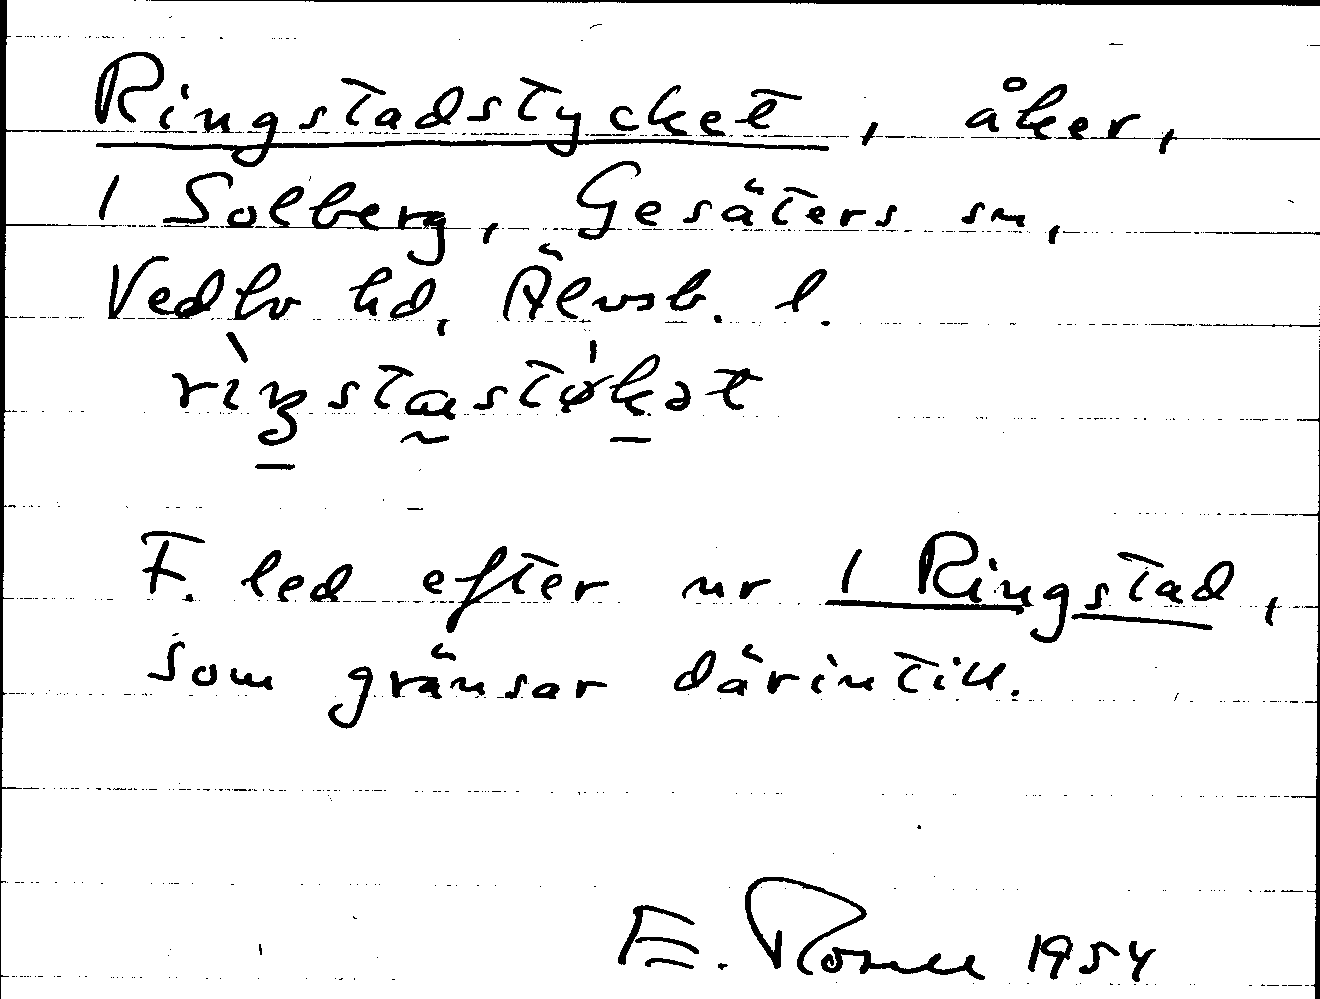 Ringstadstycket, åker,
1 Solberg, Gesäters sn,
Vedbo hd, Älvsb. l.
F. led efter nr 1 Ringstad,
som gränsar därintill.
E. 1954